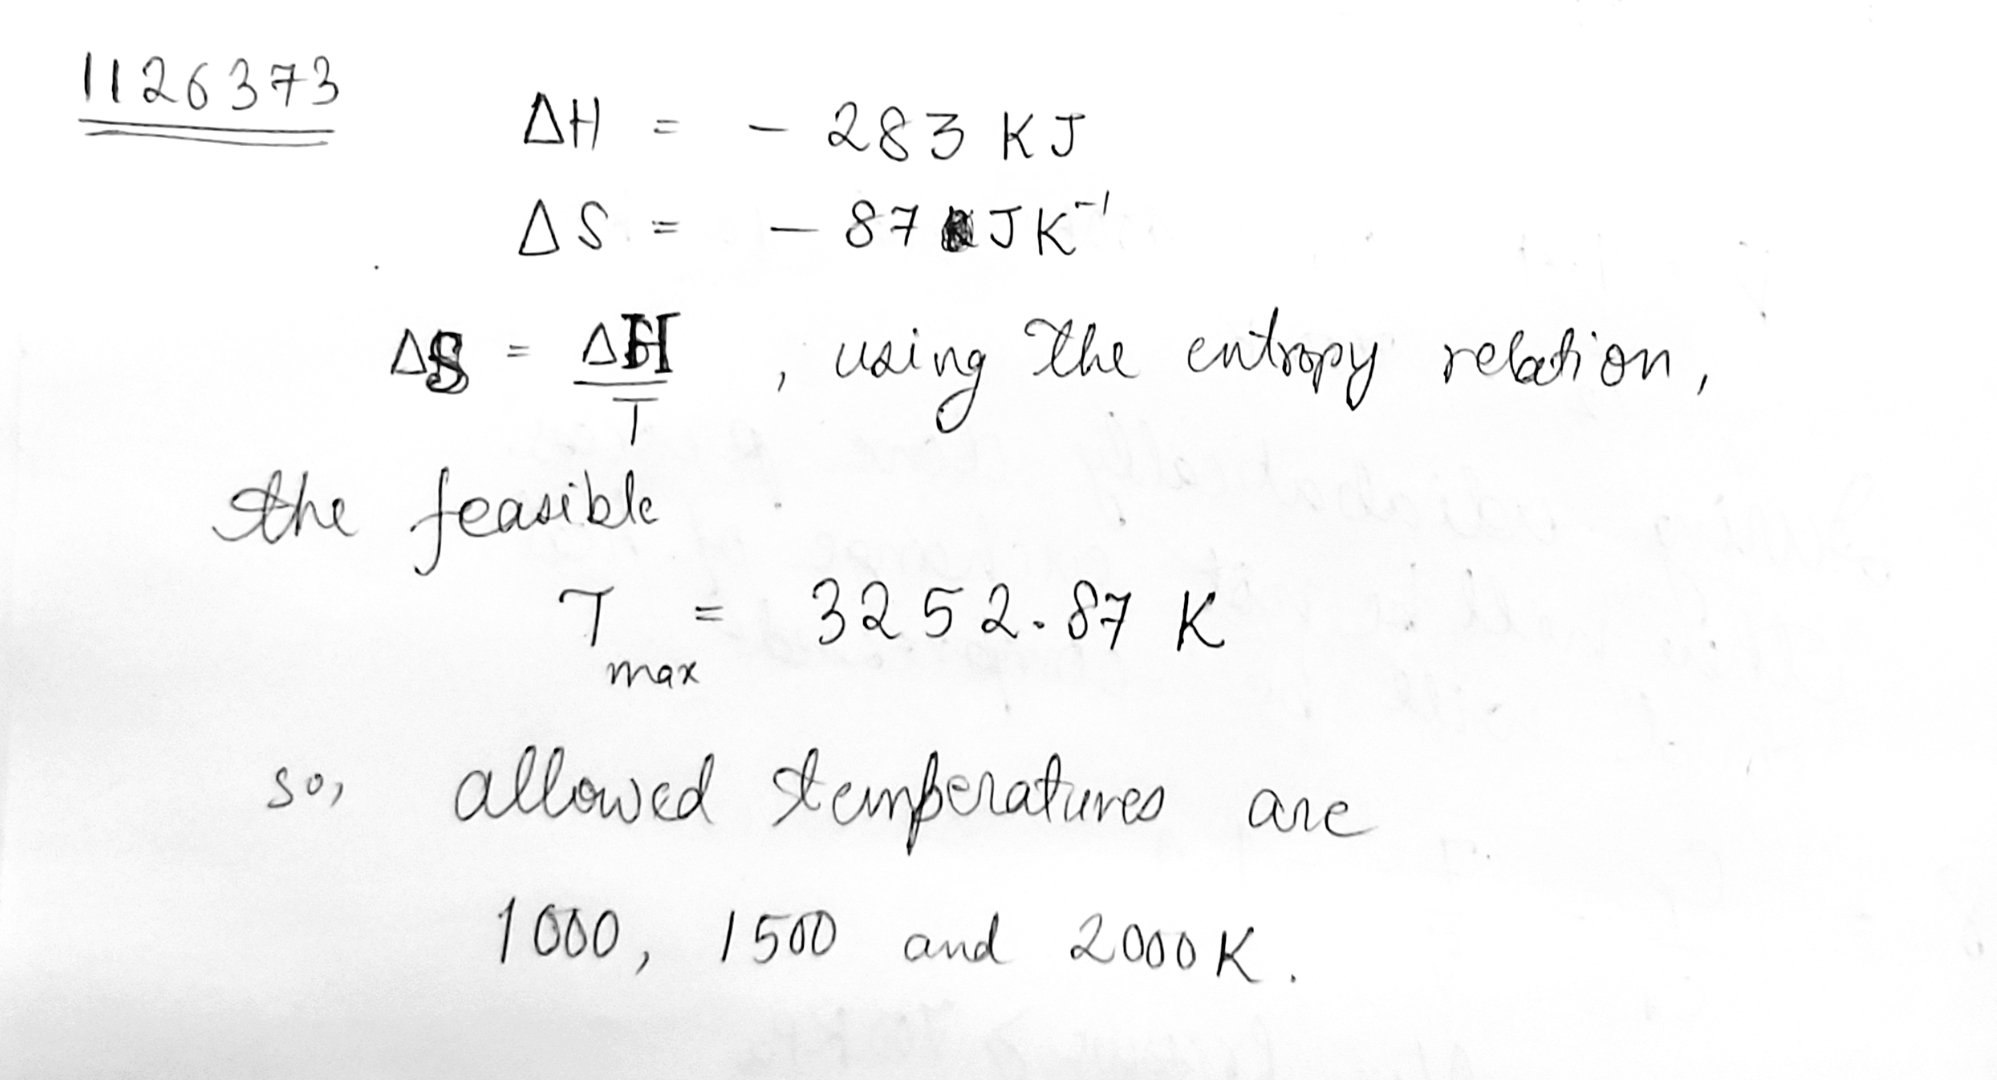 1126373
ΔH = - 283 KJ
ΔS = - 87 JK⁻¹
ΔS = ΔH/T , using the entropy relation,
the feasible
Tmax = 3252.87 K
so, allowed temperatures are
1000, 1500 and 2000K.